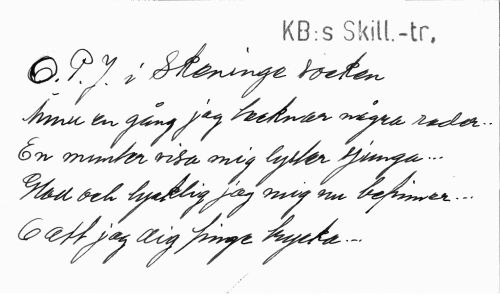 KB:s Skill.-tr.
O. P. J. i Skeninge socken
Ännu en gång jag tecknar några rader...
En munter visa mig lyster sjunga...
Glad och lycklig jag mig nu befinner...
O att jag dig finge trycka...